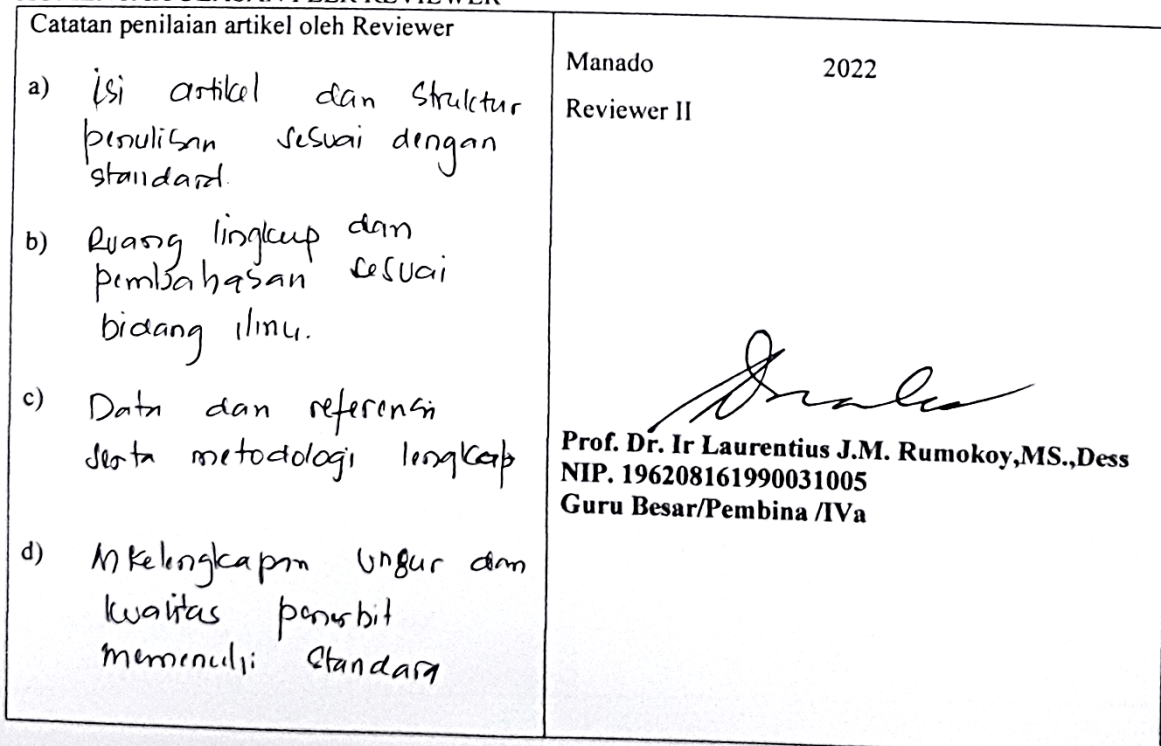 Catatan penilaian artikel oleh Reviewer
a) isi artikel dan Struktur
penulisan sesuai dengan
standard.
b) Ruang lingkup dan
pembahasan sesuai
bidang ilmu.
c) Data dan referensi
serta metodologi lengkap
d) kelengkapan unsur dan
kualitas penerbit
memenuhi Standard
Manado 2022
Reviewer II
Prof. Dr. Ir Laurentius J.M. Rumokoy,MS.,Dess
NIP. 196208161990031005
Guru Besar/Pembina /IVa